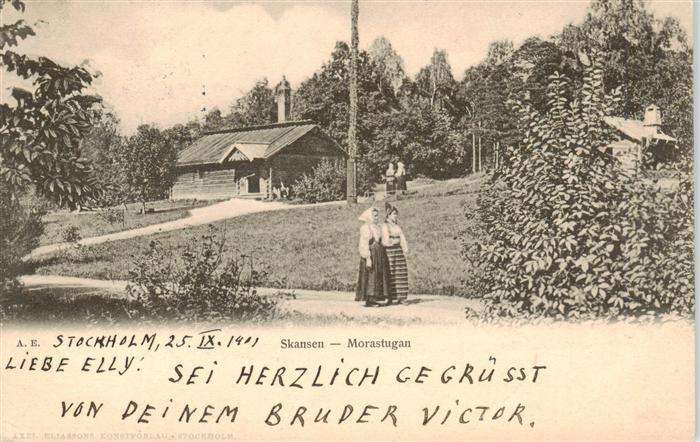 A. E. STOCKHOLM, 25. IX. 1901 Skansen — Morastugan
LIEBE ELLY!
SEI HERZLICH GEGRÜSST
VON DEINEM BRUDER VICTOR.
AXEL ELIASSONS KONSTFÖRLAG, STOCKHOLM.